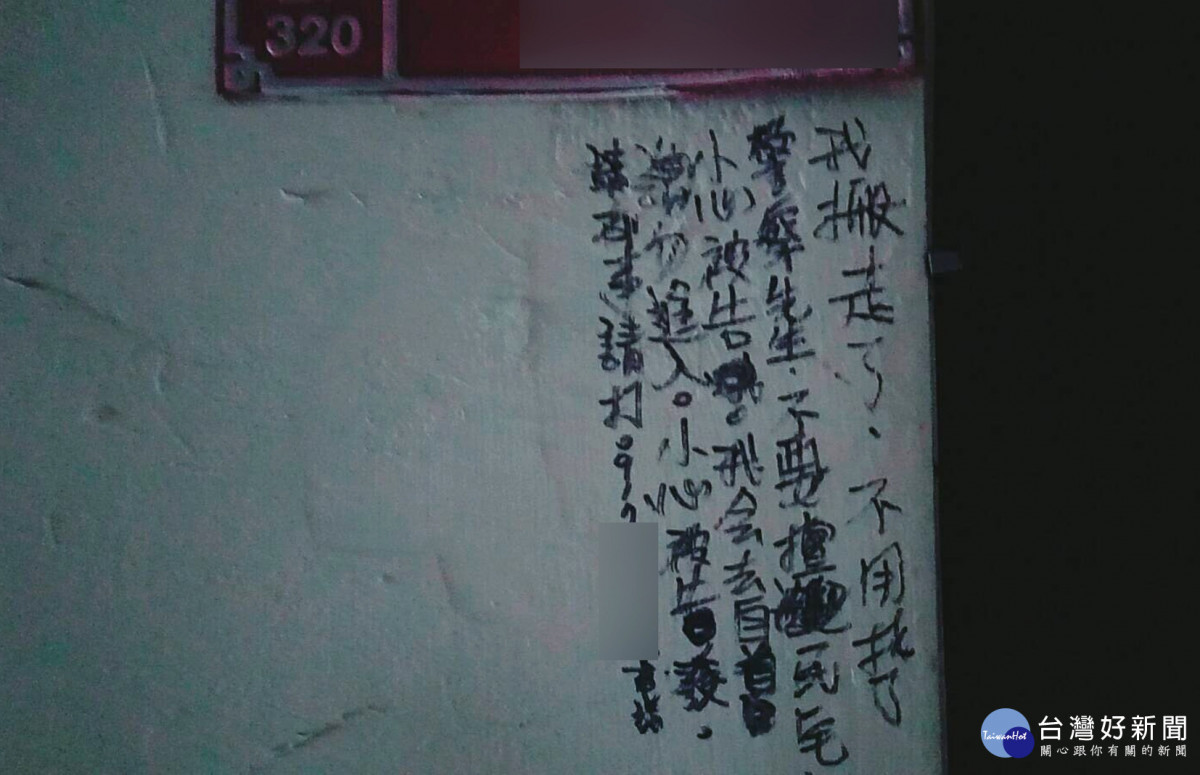 320
我搬走了.不用找了
警察先生.不要擅民宅.
小心被告。我会去自首
請勿進入。小心被告發.
車請打09
台灣好新聞
TaiwanHot
關心跟你有關的新聞